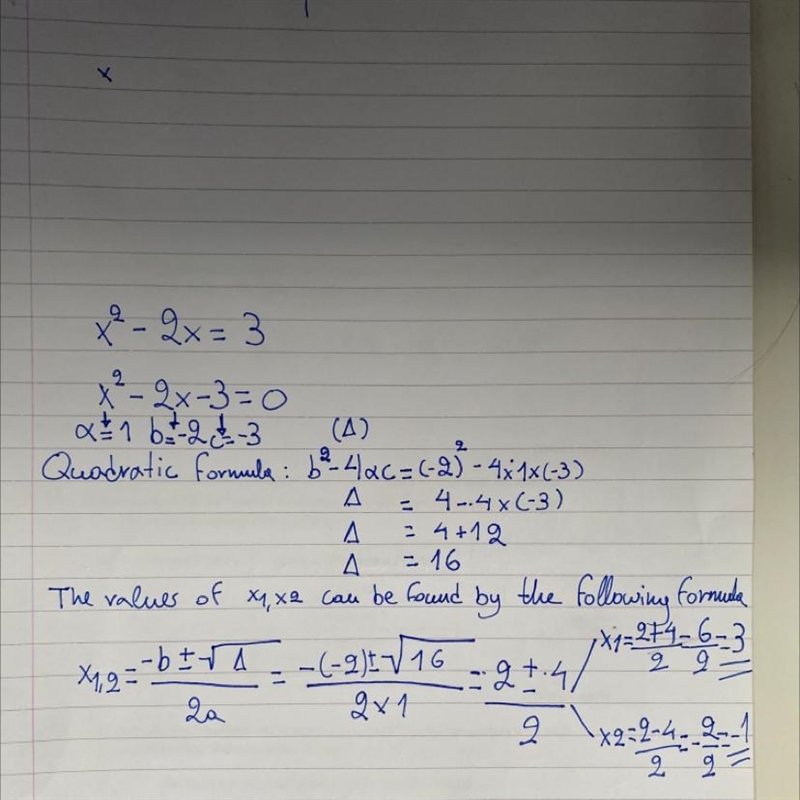 x
x² - 2x = 3
x² - 2x - 3 = 0
α = 1 b = -2 c = -3 (Δ)
Quadratic formula: b² - 4αc = (-2)² - 4x1x(-3)
Δ = 4 - 4x(-3)
Δ = 4+12
Δ = 16
The values of x1,x2 can be found by the following formula
x1,2 = (-b ± √Δ)/2a = (-(-2) ± √16)/(2x1) = (2 ± 4)/2
x1 = (2+4)/2 = 6/2 = 3
x2 = (2-4)/2 = -2/2 = -1